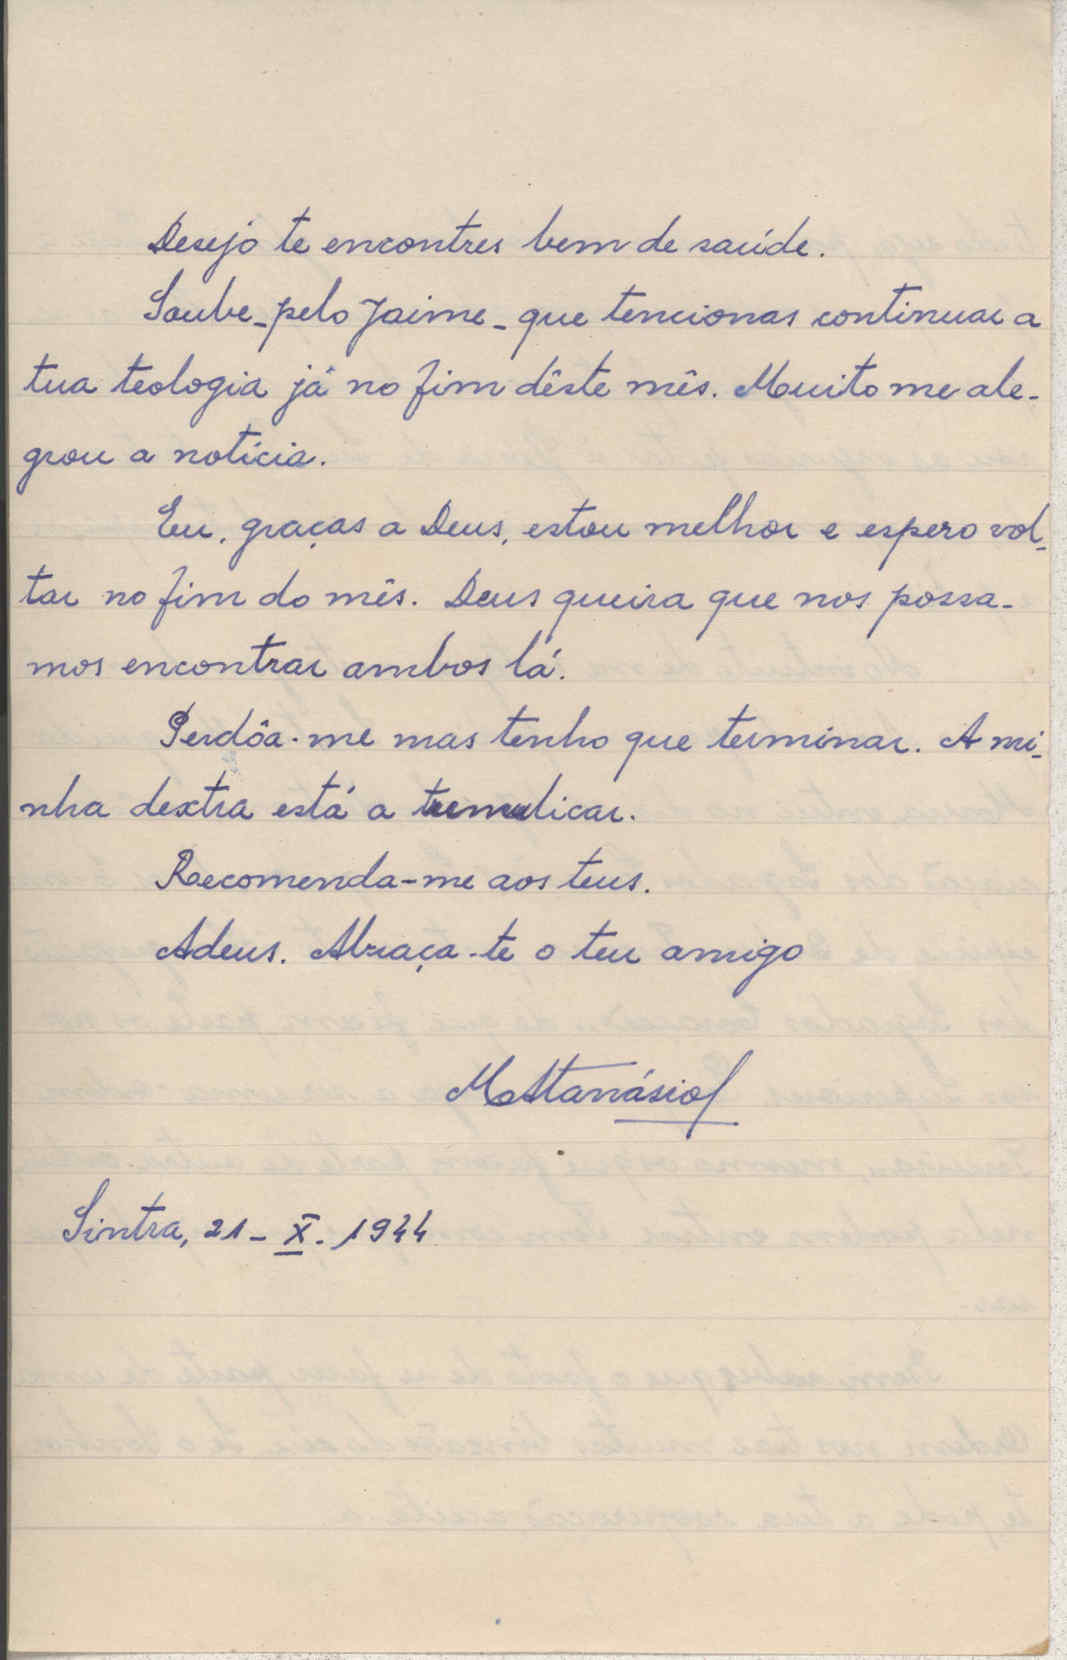 Desejo te encontres bem de saúde.
Soube-pelo Jaime-que tencionas continuar a
tua teologia já no fim dêste mês. Muito me ale-
grou a notícia.
Eu, graças a Deus, estou melhor e espero vol-
tar no fim do mês. Deus queira que nos possa-
mos encontrar ambos lá.
Perdôa-me mas tenho que terminar. A mi-
nha dextra está a tremelicar.
Recomenda-me aos teus.
Adeus. Abraça-te o teu amigo
MAtanásio
Sintra, 21-X-1944